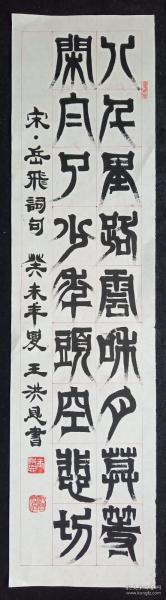 八千里路雲和月莫等
閑白了少年頭空悲切
宋·岳飛詞句 癸未年夏 王洪書